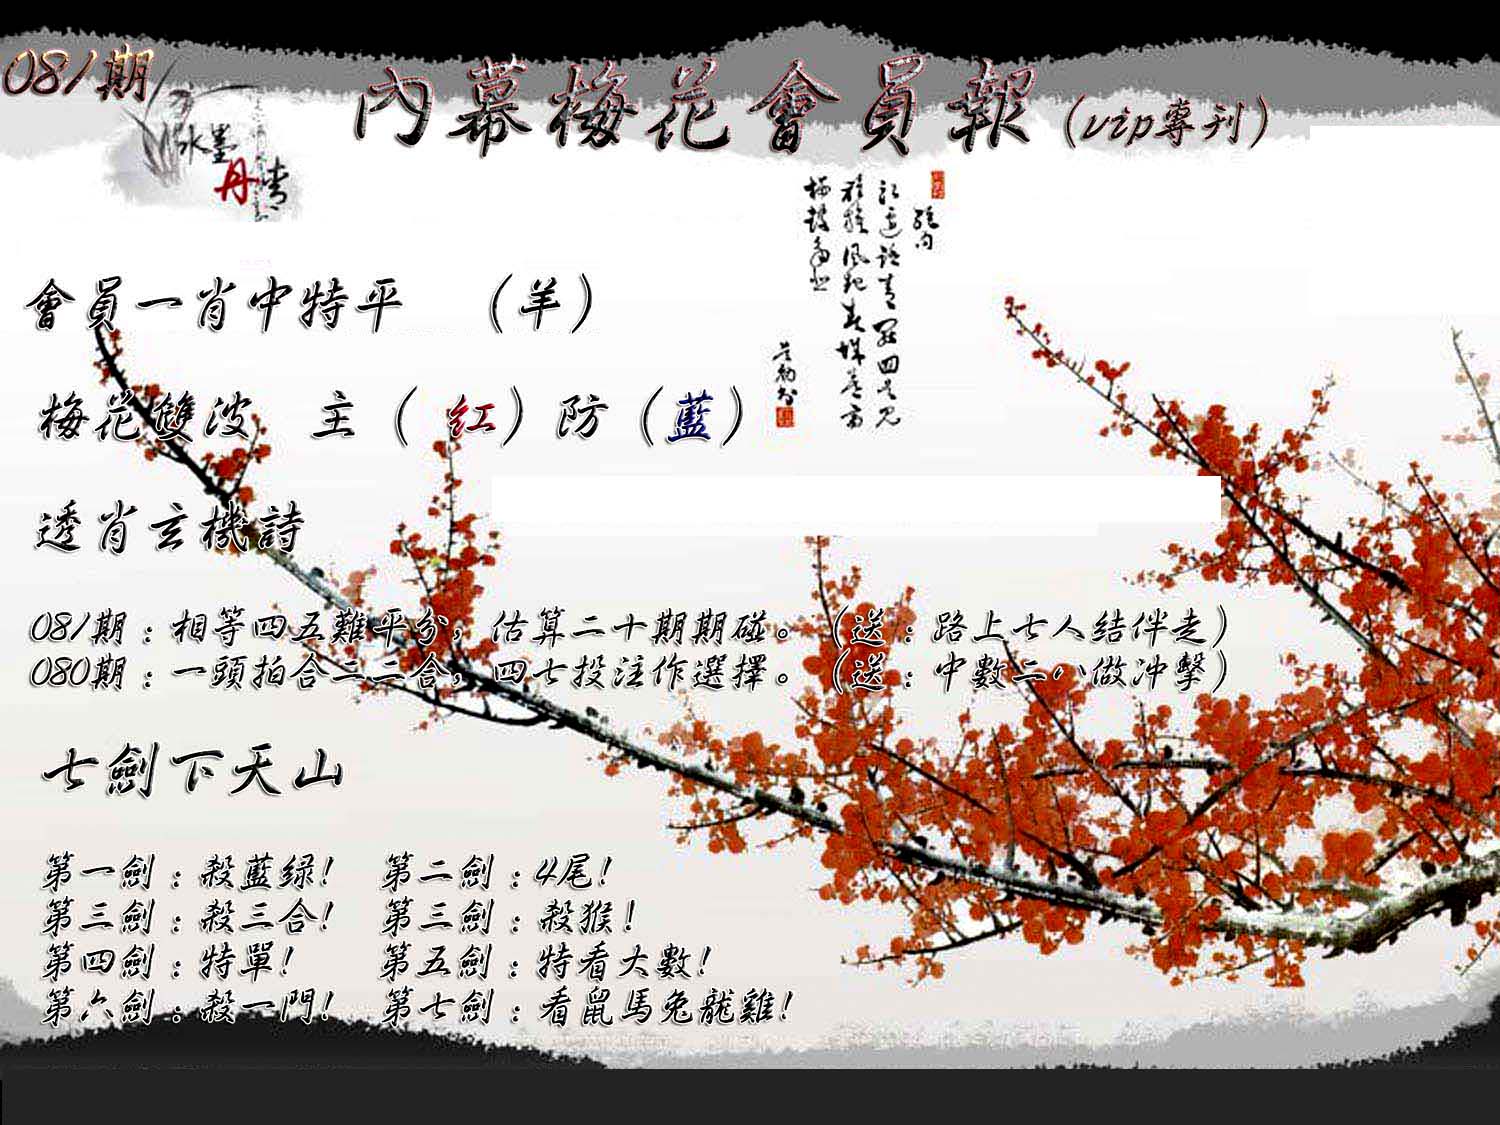 081期
內幕梅花會員報（vip專刊）
水墨
丹青
會員一肖中特平 （羊）
梅花雙波 主（紅）防（藍）
透肖玄機詩
081期：相等四五難平分，估算二十期期碰。（送：路上七人结伴走）
080期：一頭拍合二二合，四七投注作選擇。（送：中數二八做冲擊）
七劍下天山
第一劍：殺藍绿！ 第二劍：4尾！
第三劍：殺三合！ 第三劍：殺猴！
第四劍：特單！ 第五劍：特看大數！
第六劍：殺一門！ 第七劍：看鼠馬兔龍雞！